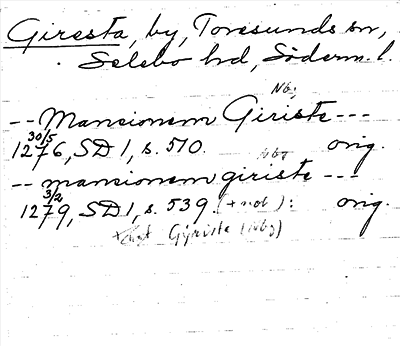 Giresta, by, Toresunds sn,
Selebo hd, Söderm. l.
Nb;
-- Mansionem Giriste ---
30/5
1276, SD 1, s. 510. orig.
Nbg
-- mansionem giriste ---
3/2
1279, SD 1, s. 539 (+ not): orig.
Gyriste (Nbg)